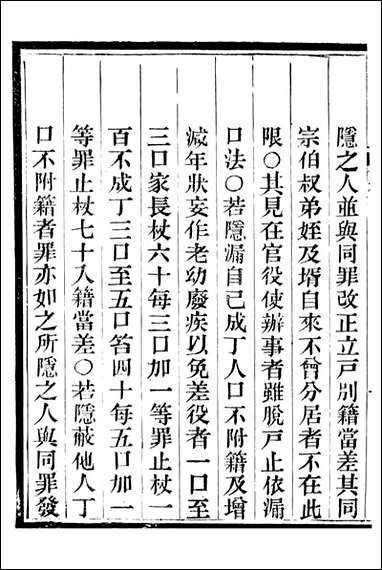 隱之人並與同罪改正立戸別籍當差其同
宗伯叔弟姪及壻自來不曾分居者不在此
限○其見在官役使辦事者雖脫戸止依漏
口法○若隱漏自己成丁人口不附籍及增
減年狀妄作老幼廢疾以免差役者一口至
三口家長杖六十每三口加一等罪止杖一
百不成丁三口至五口笞四十每五口加一
等罪止杖七十入籍當差○若隱蔽他人丁
口不附籍者罪亦如之所隱之人與同罪發